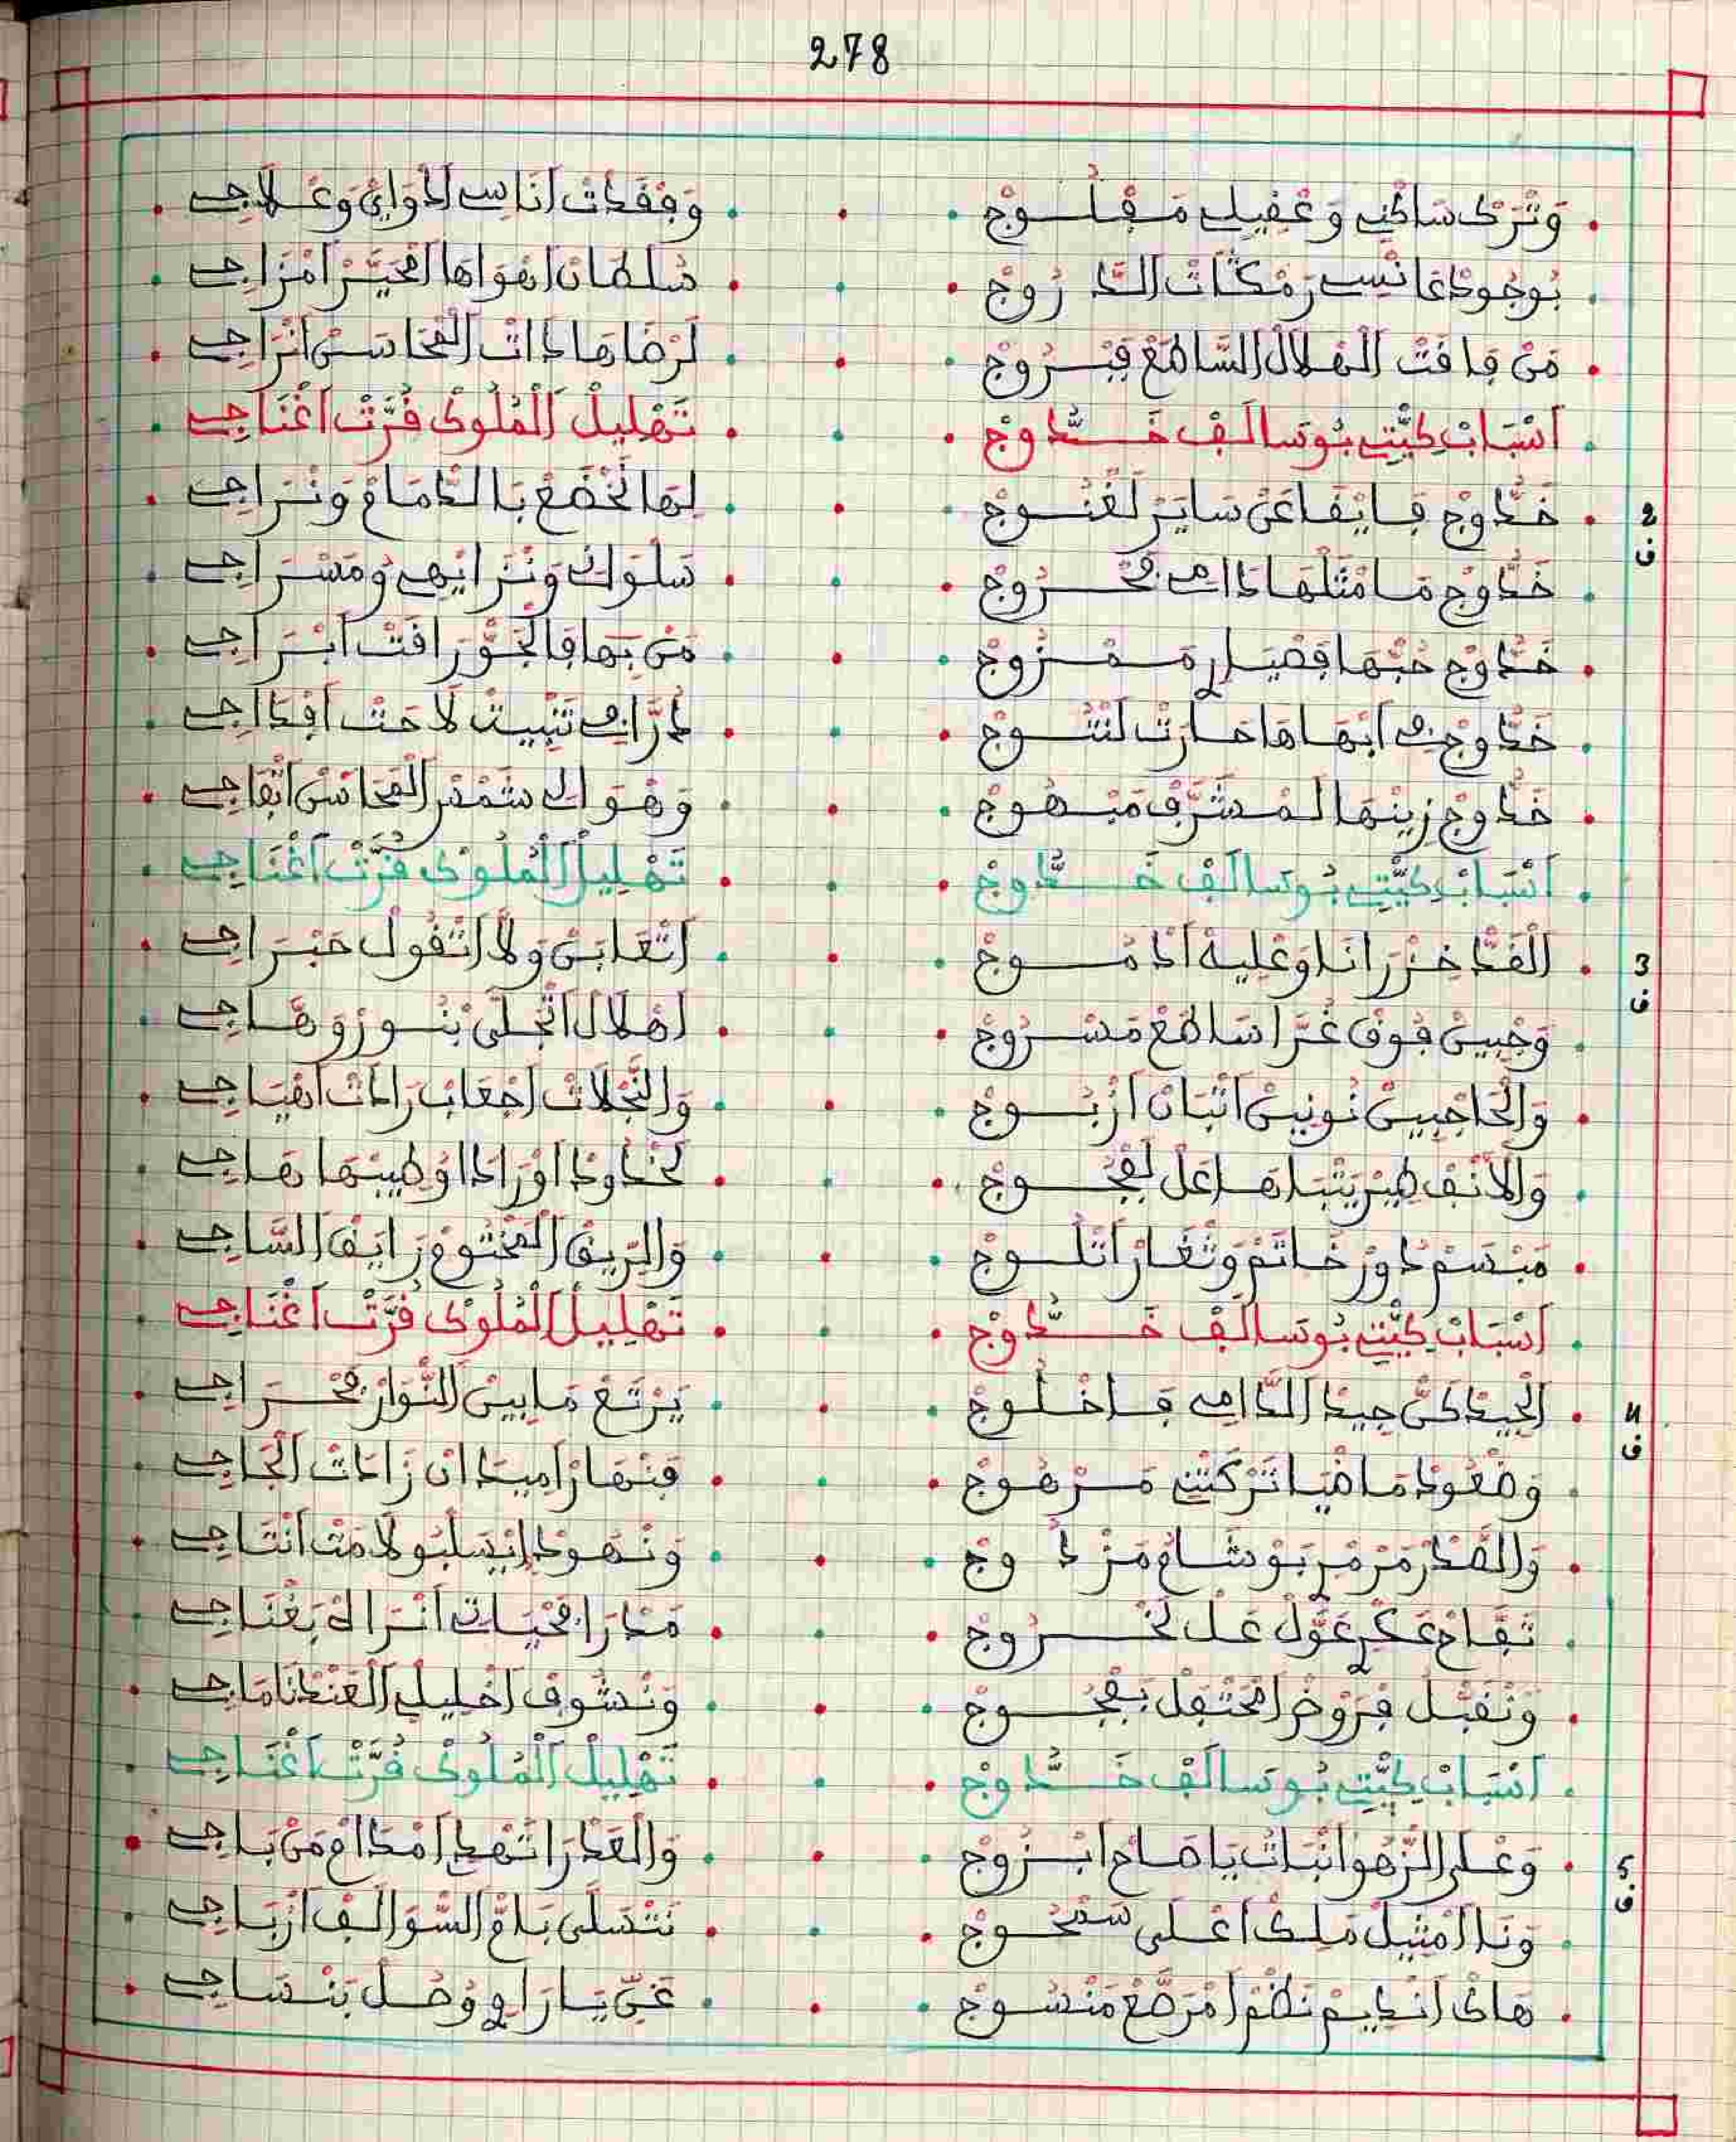 278
وَتْرَكْ سَاكْنِي وَعْقِيلِي مَفْلُوجْ • وَفْقَدْتْ اَنَاسِي اَدْوَايَ وَعْلاَجِي
بُوجُودْ غَانْسِي رَمْكَاتْ الدْرُوجْ • سُلطَانْ اَهْوَاهَا الْمْحَيَّرْ اَمْزَاجِي
مَنْ فَاقتْ الْهْلاَلْ السَّاطَعْ فَبْرُوجْ • لَرْضَاهَا ذَاتْ الْمْحَاسَنْ اَنْرَاجِي
اَسْبَابْ كِيّتِي بُوسَالَفْ خَدُّوجْ • تَهْلِيلْ الْمْلُوكْ قُرَّتْ اَغْنَاجِي
2 ف
خَدُّوجْ فَايْقَا عَنْ سَايَرْ لَغْنُوجْ • لِهَا نَخْضَعْ بَالدْمَامْ وَنْرَاجِي
خَدُّوجْ مَا مْثَلْهَا دَامِي فْمْرُوجْ • سَلْوَانِي وَنْزَايْهِي وُمَسْرَاجِي
خَدُّوجْ حُبّْهَا فَضْيَا مَمْزُوجْ • مَنْ بَهَا فَالْجَوّْ رَاقَتْ اَبْرَاجِي
خَدُّوجْ فِي اَبْهَاهَا حَارَتْ لَنْتُوجْ • دُرَّا فِي تَتْبِيتْ لاَحَتْ اَفْدَاجِي
خَدُّوجْ زِينْهَا لَمْشَرَّفْ مَبْهُوجْ • وَهْوَايَ شَمْسْ الْمْحَاسَنْ اَتْفَاجِي
اَسْبَابْ كِيّتِي بُوسَالَفْ خَدُّوجْ • تَهْلِيلْ الْمْلُوكْ قُرَّتْ اَغْنَاجِي
3 ف
الْقَدّْ خِزْرَانَا وَعْلِيهْ اَدْمُوجْ • اَتْعَابَنْ وَلاَّ اَتْقُولْ حَبْرَاجِي
وَجْبِينْ فُوقْ غُرَّا سَاطَعْ مَسْرُوجْ • اَهْلاَلْ اَتْجَلَّى بْنُورْ وَهَّاجِي
وَالْحَاجْبِينْ نُونِينْ اَنْبَانْ اَزْبُوجْ • وَالنَّجْلاَتْ اَجْعَابْ رَادَتْ اَهْيَاجِي
وَالاَنْفْ طِيرْ يَنْبَاهَا عْلْ لَفْجُوجْ • لَخْدُودْ اَوْرَادَا وُطِيبْهَا هَاجِي
مَبْسَمْ دُورْ خَاتَمْ وَثْغَارْ اَتْلُوجْ • وَالرِّيقْ الْمْخْتُومْ رَايَقْ السَّاجِي
اَسْبَابْ كِيّتِي بُوسَالَفْ خَدُّوجْ • تَهْلِيلْ الْمْلُوكْ قُرَّتْ اَغْنَاجِي
4 ف
الْجِيدْ كَنّْ جِيدْ الدَّامِي فَاخْلُوجْ • يَرْتَعْ مَا بِينْ النُّوَارْ فْحْرَاجِي
وَضْعُودْ مَاضْيَا تَرْكَتْنِي مَرْهُوجْ • فَنْهَارْ اَمِيدَانْ زَادَتْ اَلْجَاجِي
وَالصْدَرْ مَرْمْرِ بَوْشَامْ مَزْدُوجْ • وَنْهُودْ اِيْسَلْبُو لاَمَتْ اَنْتَاجِي
تَفَّاحْ عَكْرِ عَوَّلْ عْلْ لَخْرُوجْ • مَدْرَا فْحْيَاتِي اَنْرَاهْ بَغْنَاجِي
وَنْقَبَّلْ فَرْوْضْ اَمْحَتْفَلْ بَفْجُوجْ • وَنْشُوفْ اَخْلِيلِي الْعَنْدْنَا مَاجِي
اَسْبَابْ كِيّتِي بُوسَالَفْ خَدُّوجْ • تَهْلِيلْ الْمْلُوكْ قُرَّتْ اَغْنَاجِي
5 ف
وَعْلَى الزّْهُو اَنْبَاتْ يَا صَاحْ اَبْزُوجْ • وَالْعَدْرَا تَهْدِ اَمْدَامْ مَنْ بَاجِي
وَنَا اَمْثِيلْ مَلِكْ اَعْلَى سَمْحُوجْ • نَتْسَلَّى بَامّْ السّْوَالَفْ اَزْبَاجِي
هَاكْ اَنْدِيمْ نَظْمْ اَمْرَصَّعْ مَنْسُوجْ • غَنِّ يَا رَاوِ وُحُلْ بَنْسَاجِي